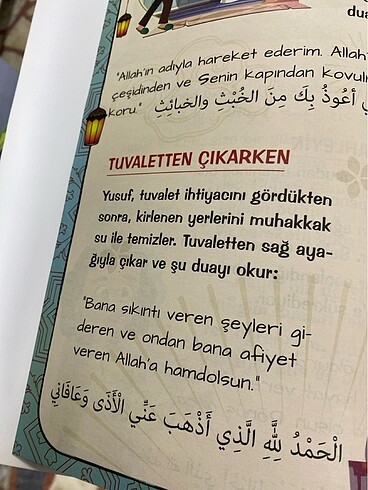 dua
"Allah'ın adıyla hareket ederim. Allah'
çeşidinden ve Senin kapından kovuln
koru."
أَعُوذُ بِكَ مِنَ الْخُبْثِ والخبائِثِ
TUVALETTEN ÇIKARKEN
Yusuf, tuvalet ihtiyacını gördükten
sonra, kirlenen yerlerini muhakkak
su ile temizler. Tuvaletten sağ aya-
ğıyla çıkar ve şu duayı okur:
"Bana sıkıntı veren şeyleri gi-
deren ve ondan bana afiyet
veren Allah'a hamdolsun."
الْحَمْدُ لِلَّهِ الَّذِي أَذْهَبَ عَنِّي الْأَذَى وَعَافَانِي